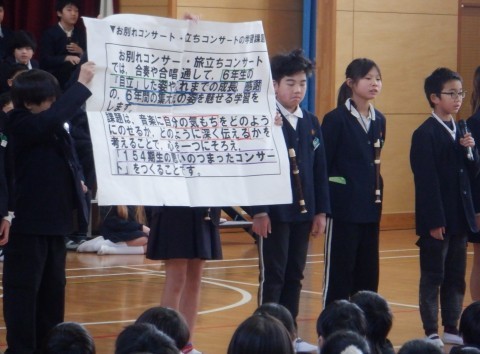 ▼お別れコンサート・立ちコンサートの学習課題
お別れコンサート・旅立ちコンサート
では、合奏や合唱通して、6年生の
の、6年間の集大の姿を魅せる学習を
します。
課題は、音楽に自分の気もちをどのよう
にのせるか、どのように深く伝えるかを
考えることで、心を一つにそろえ、
「154期生の思いのつまったコンサー
ト」をつくることです。